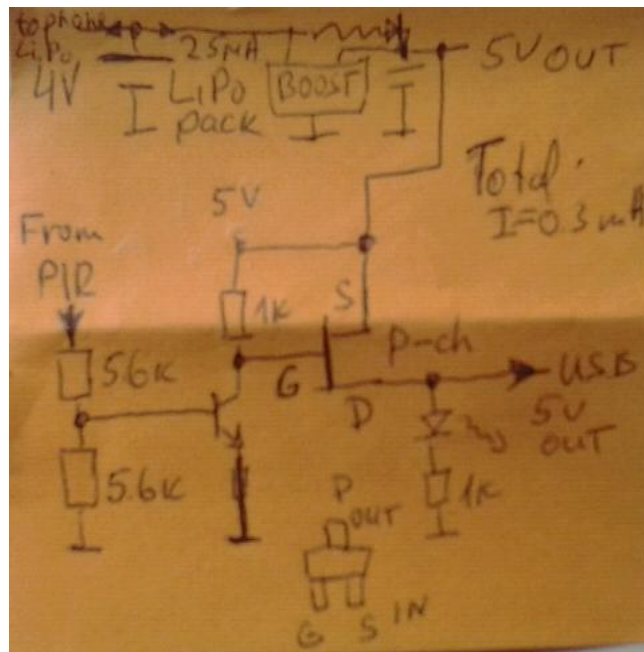 to phone
LiPo
4V
25MA
LiPo
pack
BOOST
5V OUT
Total
I=0.3 mA
5V
From
PIR
1K
S
P-ch
G
D
56K
5.6K
USB
5V
OUT
1K
D
OUT
G S IN